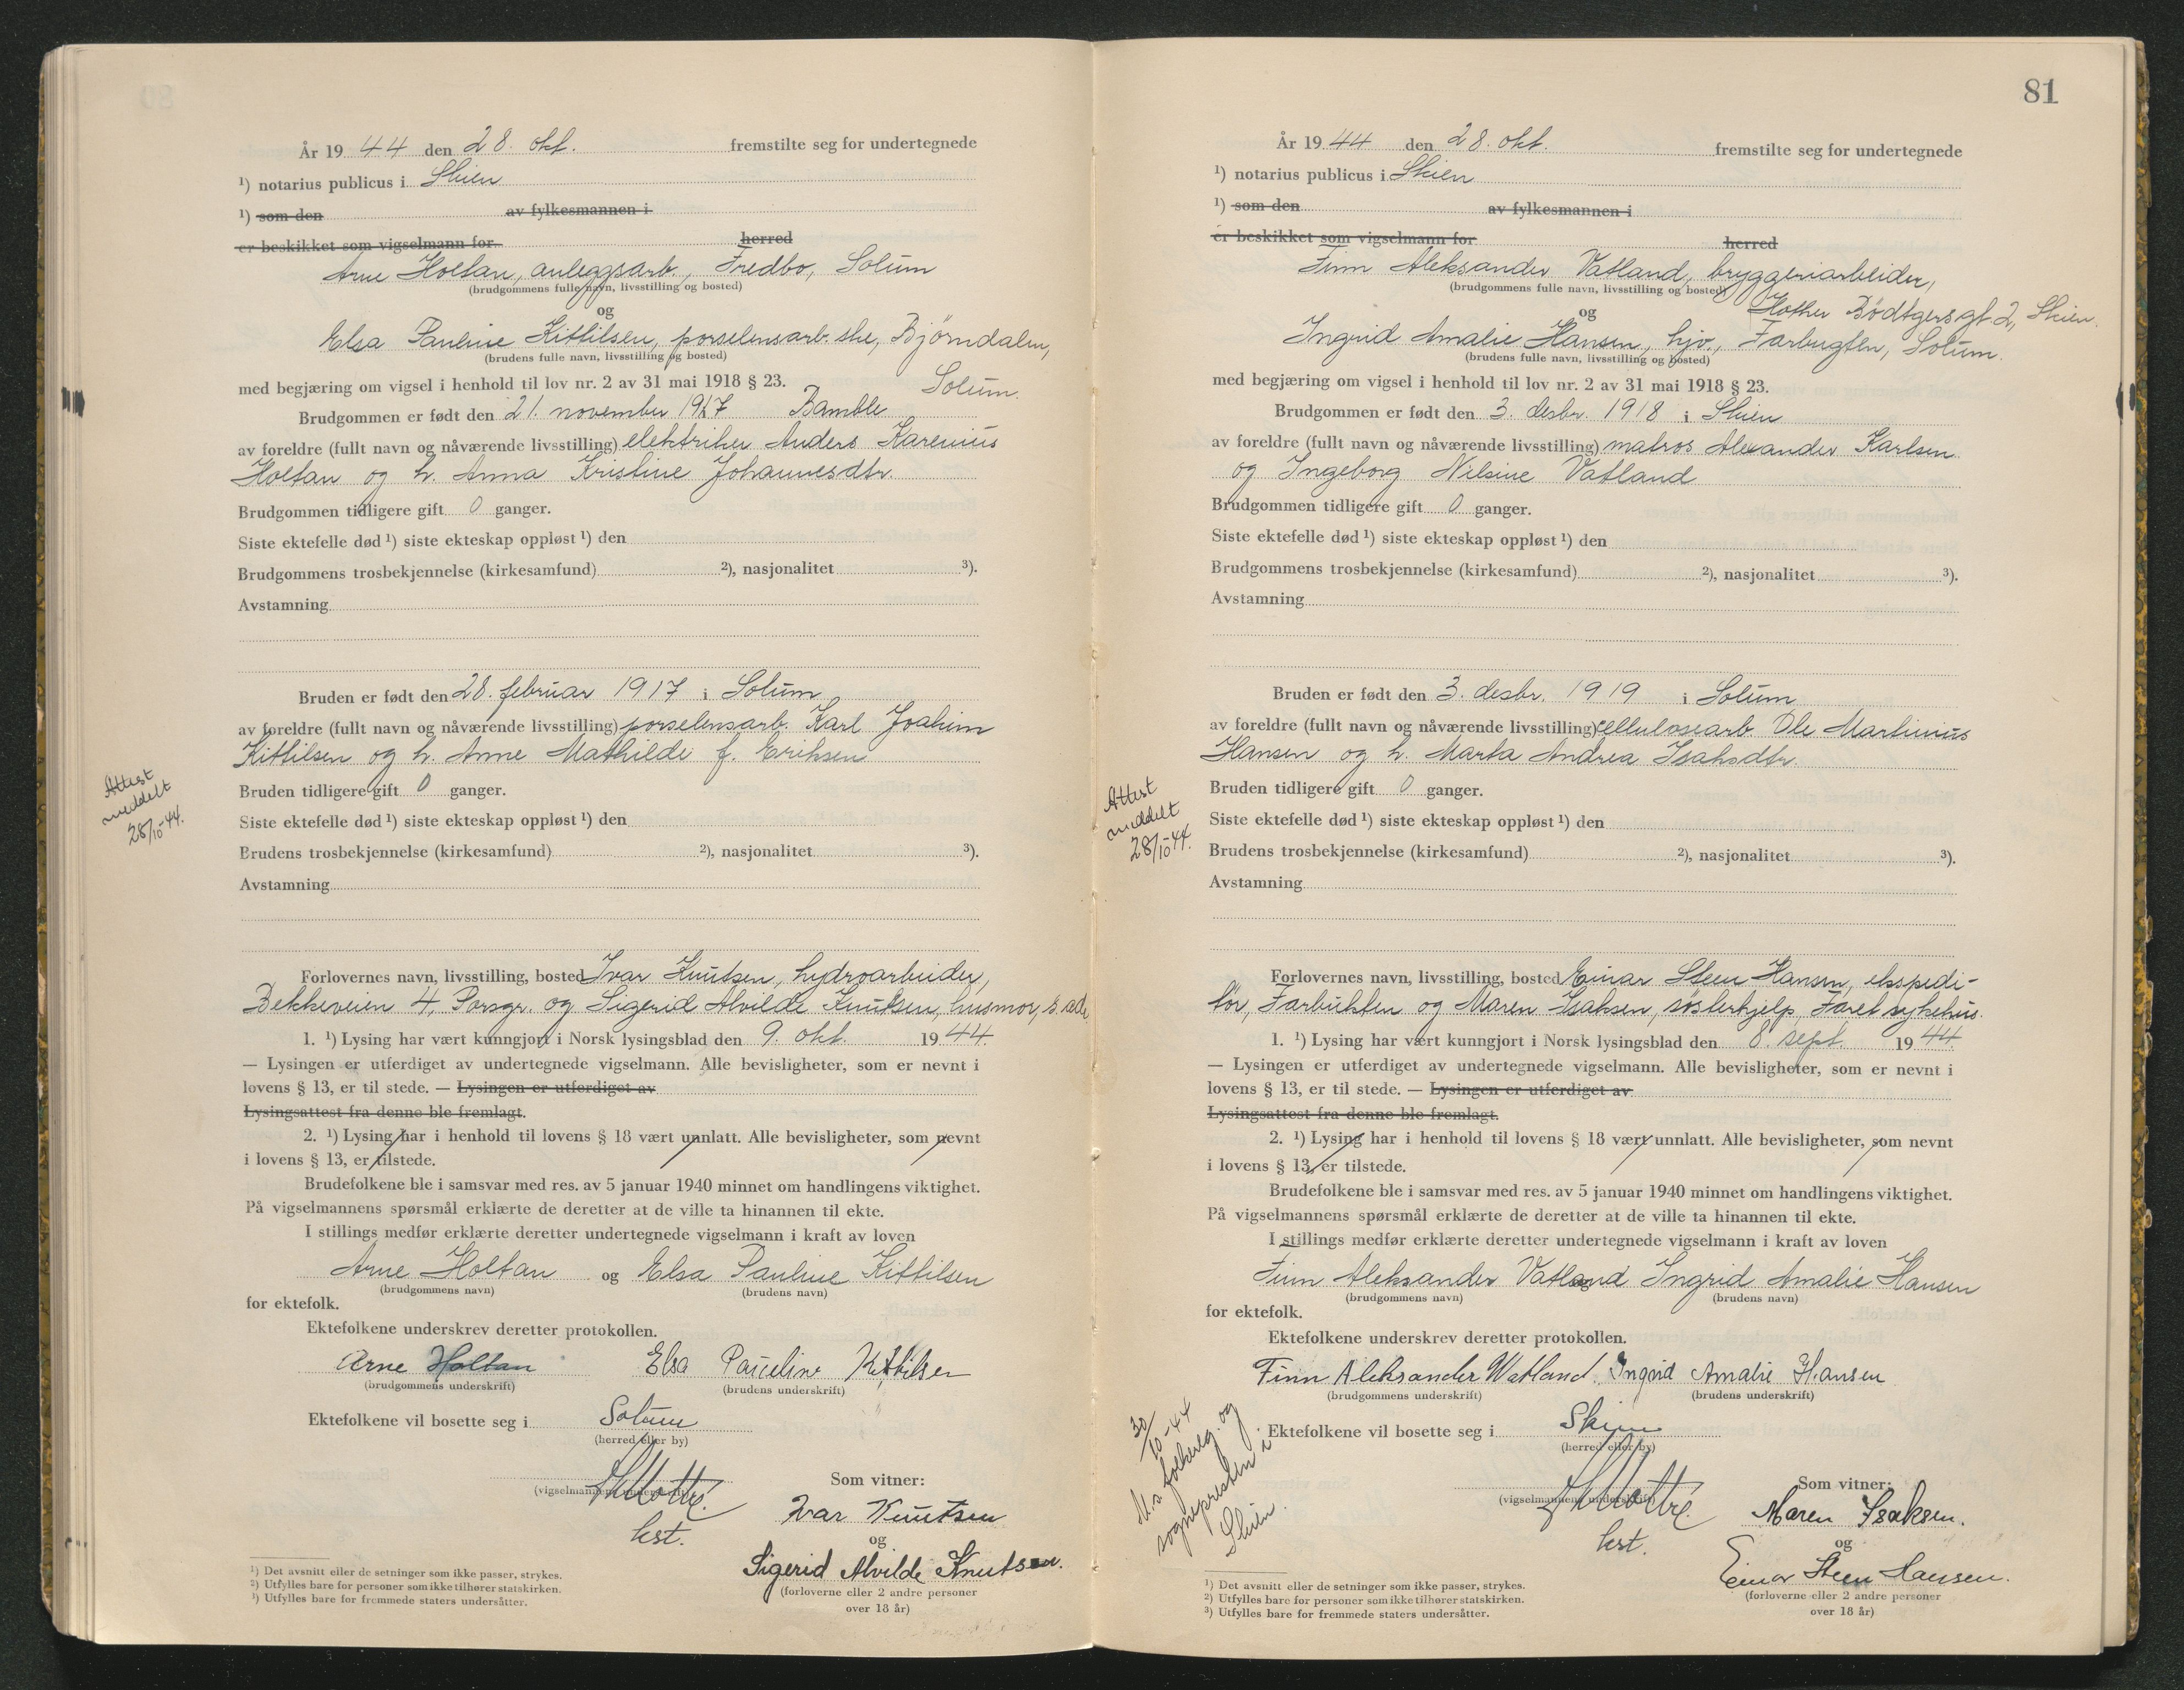 År 19 44 den 28. okt. fremstilte seg for undertegnede
¹) notarius publicus i Skien
¹) som den av fylkesmannen i
er beskikket som vigselmann for herred
Arne Holtan, anleggsarb., Fredbo, Solum
(brudgommens fulle navn, livsstilling og bosted)
og
Elsa Pauline Kittilsen, porselensarb.ske, Bjørndalen,
(brudens fulle navn, livsstilling og bosted)
Solum.
med begjæring om vigsel i henhold til lov nr. 2 av 31 mai 1918 § 23.
Brudgommen er født den 21. november 1917 Bamble
av foreldre (fullt navn og nåværende livsstilling) elektriker Anders Karenius
Holtan og h. Anna Kristine Johannesdtr.
Brudgommen tidligere gift 0 ganger.
Siste ektefelle død ¹) siste ekteskap oppløst ¹) den
Brudgommens trosbekjennelse (kirkesamfund) ²), nasjonalitet ³).
Avstamning
Bruden er født den 28. februar 1917 i Solum
av foreldre (fullt navn og nåværende livsstilling) porselensarb. Karl Joakim
Kittilsen og h. Anne Mathilde f. Eriksen
Bruden tidligere gift 0 ganger.
Attest
meddelt
28/10-44.
Siste ektefelle død ¹) siste ekteskap oppløst ¹) den
Brudens trosbekjennelse (kirkesamfund) ²), nasjonalitet ³).
Avstamning
Forlovernes navn, livsstilling, bosted Ivar Knutsen, hydroarbeider,
Bekkeveien 4, Porsgr. og Sigerid Alvilde Knutsen, husmor, s.sted,
1. ¹) Lysing har vært kunngjort i Norsk lysingsblad den 9. okt. 1944.
— Lysingen er utferdiget av undertegnede vigselmann. Alle bevisligheter, som er nevnt i
lovens § 13, er til stede. — Lysingen er utferdiget av
Lysingsattest fra denne ble fremlagt.
2. ¹) Lysing har i henhold til lovens § 18 vært unnlatt. Alle bevisligheter, som nevnt
i lovens § 13, er tilstede.
Brudefolkene ble i samsvar med res. av 5 januar 1940 minnet om handlingens viktighet.
På vigselmannens spørsmål erklærte de deretter at de ville ta hinannen til ekte.
I stillings medfør erklærte deretter undertegnede vigselmann i kraft av loven
Arne Holtan og Elsa Pauline Kittilsen
(brudgommens navn) (brudens navn)
for ektefolk.
Ektefolkene underskrev deretter protokollen.
Arne Holtan Elsa Pauline Kittilsen
(brudgommens underskrift) (brudens underskrift)
Ektefolkene vil bosette seg i Solum
(herred eller by)
(vigselmannens underskrift)
Som vitner:
Ivar Knutsen
og
Sigerid Alvilde Knutsen.
(forloverne eller 2 andre personer
over 18 år)
¹) Det avsnitt eller de setninger som ikke passer, strykes.
²) Utfylles bare for personer som ikke tilhører statskirken.
³) Utfylles bare for fremmede staters undersåtter.
81
År 19 44 den 28. okt. fremstilte seg for undertegnede
¹) notarius publicus i Skien
¹) som den av fylkesmannen i
er beskikket som vigselmann for herred
Finn Aleksander Vatland, bryggeriarbeider,
(brudgommens fulle navn, livsstilling og bosted)
Hother Bödtgersgt 2, Skien.
og
Ingrid Amalie Hansen, hjv., Farbugten, Solum.
(brudens fulle navn, livsstilling og bosted)
med begjæring om vigsel i henhold til lov nr. 2 av 31 mai 1918 § 23.
Brudgommen er født den 3. desbr. 1918 i Skien
av foreldre (fullt navn og nåværende livsstilling) matros Alexander Karlsen
og Ingeborg Nilsine Vatland
Brudgommen tidligere gift 0 ganger.
Siste ektefelle død ¹) siste ekteskap oppløst ¹) den
Brudgommens trosbekjennelse (kirkesamfund) ²), nasjonalitet ³).
Avstamning
Bruden er født den 3. desbr. 1919 i Solum
av foreldre (fullt navn og nåværende livsstilling) cellulosearb. Ole Martinius
Hansen og h. Marta Andrea Isaksdtr.
Bruden tidligere gift 0 ganger.
Attest
meddelt
28/10-44.
Siste ektefelle død ¹) siste ekteskap oppløst ¹) den
Brudens trosbekjennelse (kirkesamfund) ²), nasjonalitet ³).
Avstamning
Forlovernes navn, livsstilling, bosted Einar Steen Hansen, ekspedi-
tør, Farbukten og Maren Isaksen, søsterhjelp, Faret sykehus.
1. ¹) Lysing har vært kunngjort i Norsk lysingsblad den 8. sept. 1944.
— Lysingen er utferdiget av undertegnede vigselmann. Alle bevisligheter, som er nevnt i
lovens § 13, er til stede. — Lysingen er utferdiget av
Lysingsattest fra denne ble fremlagt.
2. ¹) Lysing har i henhold til lovens § 18 vært unnlatt. Alle bevisligheter, som nevnt
i lovens § 13, er tilstede.
Brudefolkene ble i samsvar med res. av 5 januar 1940 minnet om handlingens viktighet.
På vigselmannens spørsmål erklærte de deretter at de ville ta hinannen til ekte.
I stillings medfør erklærte deretter undertegnede vigselmann i kraft av loven
Finn Aleksander Vatland Ingrid Amalie Hansen
(brudgommens navn) (brudens navn)
for ektefolk.
Ektefolkene underskrev deretter protokollen.
Finn Aleksander Watland. Ingrid Amalie Hansen
(brudgommens underskrift) (brudens underskrift)
30/10-44
M. folkereg. og
sognepresten i
Skien.
Ektefolkene vil bosette seg i Skien
(herred eller by)
(vigselmannens underskrift)
Som vitner:
Maren Isaksen.
og
Einar Steen Hansen.
(forloverne eller 2 andre personer
over 18 år)
¹) Det avsnitt eller de setninger som ikke passer, strykes.
²) Utfylles bare for personer som ikke tilhører statskirken.
³) Utfylles bare for fremmede staters undersåtter.